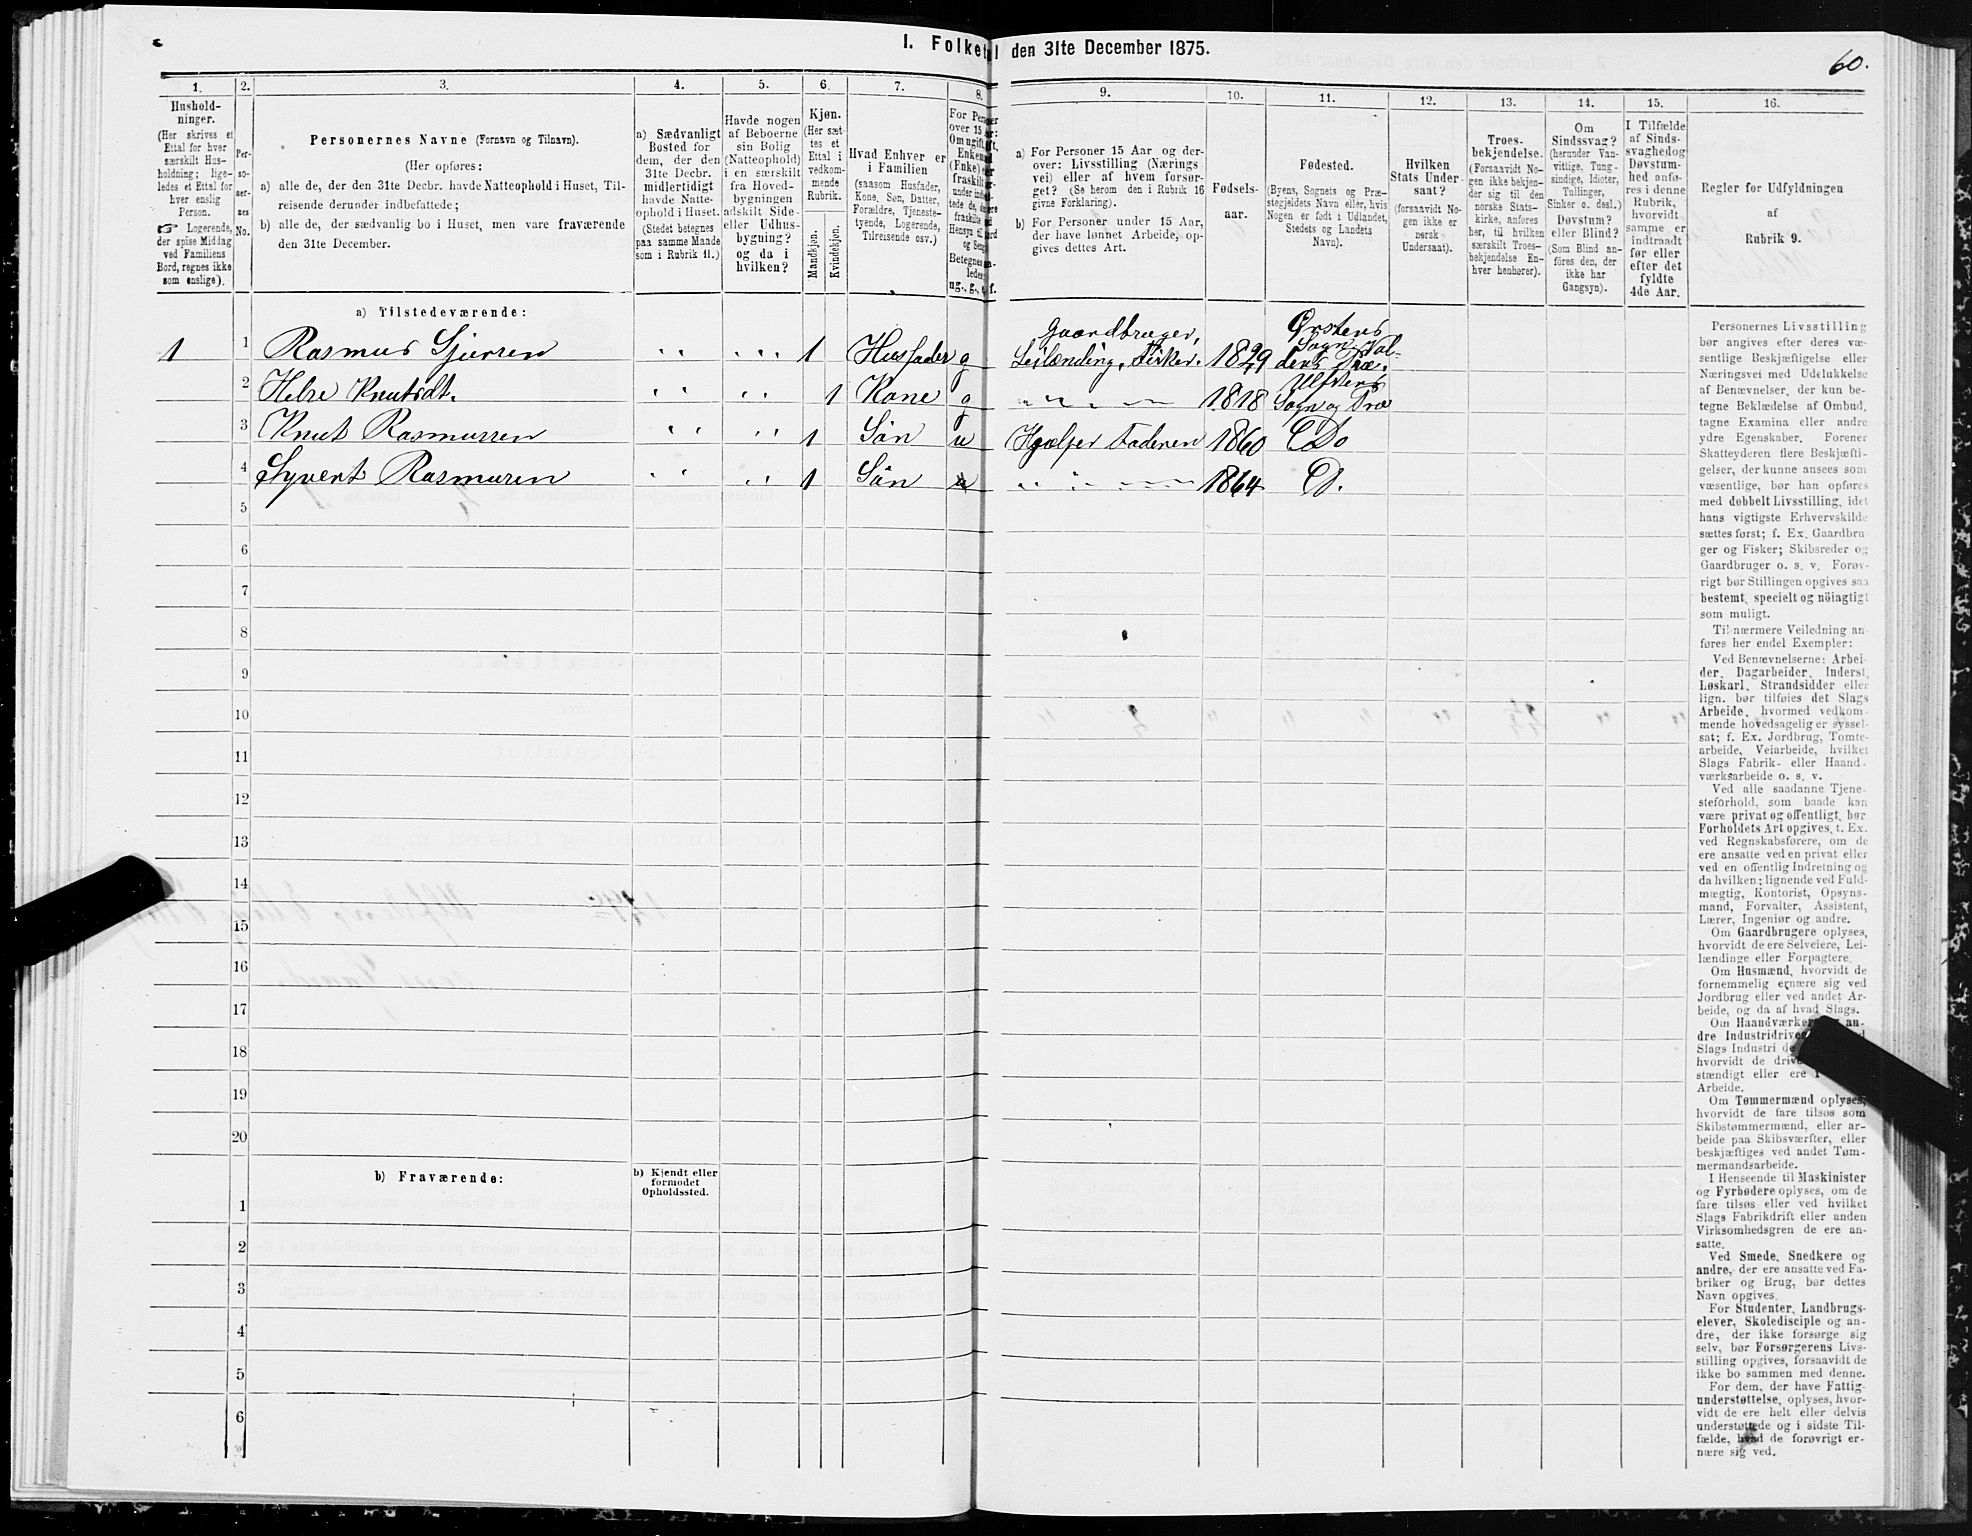 I. Folketal den 31te December 1875.
60.
1.
Hushold-
ninger.
(Her skrives et
Ettal for hver
særskilt Hus-
holdning; lige-
ledes et Ettal for
hver enslig
Person.
☞ Logerende,
der spise Middag
ved Familiens
Bord, regnes ikke
som enslige).
2.
Per-
so-
ner-
nes
No.
3.
Personernes Navne (Fornavn og Tilnavn).
(Her opføres:
a) alle de, der den 31te Decbr. havde Natteophold i Huset, Til-
reisende derunder indbefattede;
b) alle de, der sædvanlig bo i Huset, men vare fraværende
den 31te December.
4.
a) Sædvanligt
Bosted for
dem, der den
31te Decbr.
midlertidigt
havde Natte-
ophold i Huset.
(Stedet betegnes
paa samme Maade
som i Rubrik 11.)
5.
Havde nogen
af Beboerne
sin Bolig
(Natteophold)
i en særskilt
fra Hoved-
bygningen
adskilt Side-
eller Udhus-
bygning?
og da i
hvilken?
6.
Kjøn.
(Her sæt-
tes et
Ettal i
vedkom-
mende
Rubrik.
Mandkjøn.
Kvindekjøn.
7.
Hvad Enhver er
i Familien
(saasom Husfader,
Kone, Søn, Datter,
Forældre, Tjeneste-
tyende, Logerende,
Tilreisende osv.)
8.
9.
a) For Personer 15 Aar og der-
over: Livsstilling (Nærings
vei) eller af hvem forsør-
get? (Se herom den i Rubrik 16
givne Forklaring.)
b) For Personer under 15 Aar,
der have lønnet Arbeide, op-
gives dettes Art.
10.
Fødsels-
aar.
11.
Fødested.
(Byens, Sognets og Præ-
stegjeldets Navn eller, hvis
Nogen er født i Udlandet,
Stedets og Landets
Navn).
12.
Hvilken
Stats Under-
saat?
(forsaavidt No-
gen ikke er
norsk
Undersaat).
13.
Troes-
bekjendelse.
(Forsaavidt No-
gen ikke bekjen-
der sig til den
norske Stats-
kirke, anføres
her, til hvilken
særskilt Troes-
bekjendelse En-
hver henhører).
14.
Om
Sindssvag?
(herunder Van-
vittige, Tung-
sindige, Idioter,
Tullinger,
Sinker o. desl.)
Døvstum?
eller Blind?
(Som Blind an-
føres den, der
ikke har
Gangsyn).
15.
I Tilfælde
af Sinds-
svaghed og
Døvstum-
hed anfø-
res i denne
Rubrik,
hvorvidt
samme er
indtraadt
før eller
efter det
fyldte
4de Aar.
16.
Regler for Udfyldningen
af
Rubrik 9.
a) Tilstedeværende:
1 1 Rasmus Sjursen " " " " 1 Husfader g Gaardbruger, Leilænding, Fisker. 1829 Ørstens Sogn, Voldens Præ.
2 Helse Knutsdt. " " " " 1 Kone g 1818 Ulfstens Sogn og Præ
3 Knut Rasmussen " " " " 1 Søn u Hjælper Faderen 1860 Do
4 Syvert Rasmusen " " " " 1 Søn 1864 D.
5
6
7
8
9
10
11
12
13
14
15
16
17
18
19
20
b) Fraværende:
b) Kjendt eller
formodet
Opholdssted.
1
2
3
4
5
6
Personernes Livsstilling
bør angives efter deres væ-
sentlige Beskjæftigelse eller
Næringsvei med Udelukkelse
af Benævnelser, der kun be-
tegne Beklædelse af Ombud,
tagne Examina eller andre
ydre Egenskaber. Forener
Skatteyderen flere Beskjæfti-
gelser, der kunne ansees som
væsentlige, bør han opføres
med dobbelt Livsstilling, idet
hans vigtigste Erhvervskilde
sættes først; f. Ex. Gaardbru-
ger og Fisker; Skibsreder og
Gaardbruger o. s. v. Forøv-
rigt bør Stillingen opgives saa
bestemt, specielt og nöiagtigt
som muligt.
Til nærmere Veiledning an-
føres her endel Exempler:
Ved Benævnelserne: Arbei-
der, Dagarbeider, Inderst,
Løskarl, Strandsidder eller
lign. bør tilføies det Slags
Arbeide, hvormed vedkom-
mende hovedsagelig er syssel-
sat; f. Ex. Jordbrug, Tomte-
arbeide, Veiarbeide, hvilket
Slags Fabrik- eller Haand-
værksarbeide o. s. v.
Ved alle saadanne Tjene-
steforhold, som baade kan
være privat og offentligt, bør
Forholdets Art opgives, t. Ex.
ved Regnskabsførere, om de
ere ansatte ved en privat eller
ved en offentlig Indretning og
da hvilken; lignende ved Fuld-
mægtig, Kontorist, Opsyns-
mand, Forvalter, Assistent,
Lærer, Ingeniør og andre.
Om Gaardbrugere oplyses,
hvorvidt de ere Selveiere, Lei-
lændinge eller Forpagtere.
Om Husmænd, hvorvidt de
fornemmelig ernære sig ved
Jordbrug eller ved andet Ar-
beide, og da af hvad Slags.
Om Haandværkere og an-
dre Industridrivende
Slags Industri
hvorvidt de
stændigt eller ere
Arbeide.
Om Tømmermænd oplyses,
hvorvidt de fare tilsøs som
Skibstømmermænd, eller ar-
beide paa Skibsværfter, eller
beskjæftiges ved andet Tøm-
mermandsarbeide.
I Henseende til Maskinister
og Fyrbødere oplyses, om de
fare tilsøs eller ved hvilket
Slags Fabrikdrift eller anden
Virksomhedsgren de ere an-
satte.
Ved Smede, Snedkere og
andre, der ere ansatte ved Fa-
briker og Brug, bør dettes
Navn opgives.
For Studenter, Landbrugs-
elever, Skoledisciple og an-
dre, der ikke forsørge sig
selv, bør Forsørgerens Livs-
stilling opgives, forsaavidt de
ikke bo sammen med denne.
For dem, der have Fattig-
understøttelse, oplyses, hvor-
vidt de ere helt eller delvis
understøttede og i sidste Til-
fælde, hvad de forøvrigt er-
nære sig ved.